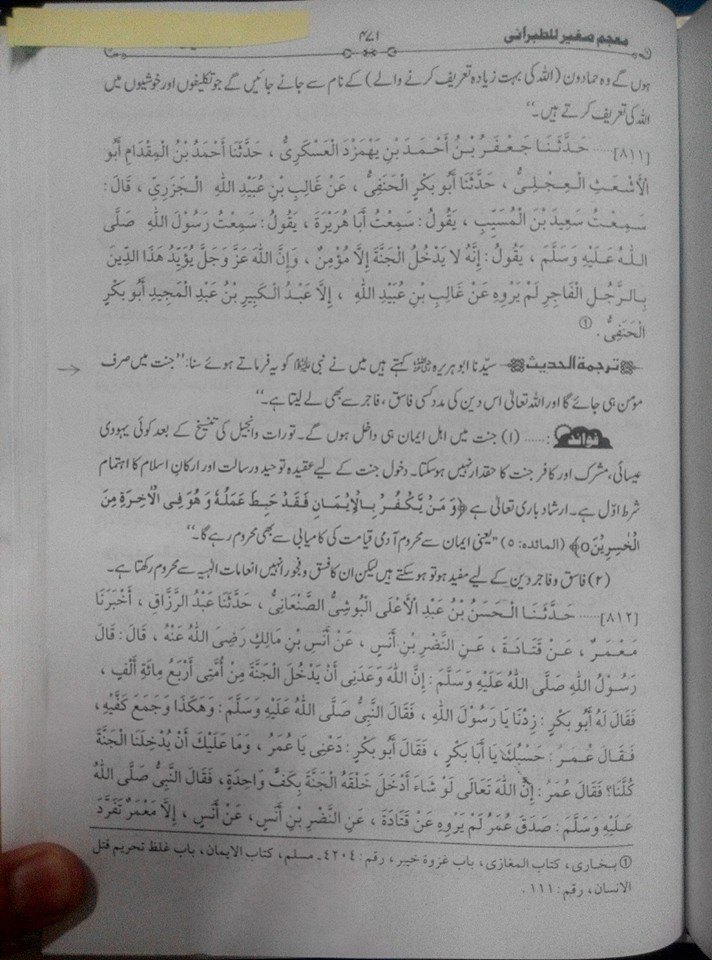 معجم صغير للطبرانی ۴۷۱
ہوں گے وہ حمادون (اللہ کی بہت زیادہ تعریف کرنے والے) کے نام سے جانے جائیں گے جو تکلیفوں اور خوشیوں میں
اللہ کی تعریف کرتے ہیں۔‘‘
[۸۱۱]...... حَدَّثَنَا جَعْفَرُ بْنُ أَحْمَدَ بْنِ بَهْمَرْدَ الْعَسْكَرِيُّ ، حَدَّثَنَا أَحْمَدُ بْنُ الْمِقْدَامِ أَبُو
الْأَشْعَثِ الْعِجْلِيُّ ، حَدَّثَنَا أَبُو بَكْرٍ الْحَنَفِيُّ ، عَنْ غَالِبِ بْنِ عُبَيْدِ اللّٰهِ الْجَزَرِيِّ ، قَالَ :
سَمِعْتُ سَعِيدَ بْنَ الْمُسَيِّبِ ، يَقُولُ : سَمِعْتُ أَبَا هُرَيْرَةَ ، يَقُولُ : سَمِعْتُ رَسُولَ اللّٰهِ صَلَّى
اللّٰهُ عَلَيْهِ وَسَلَّمَ ، يَقُولُ : إِنَّهُ لَا يَدْخُلُ الْجَنَّةَ إِلَّا مُؤْمِنٌ ، وَإِنَّ اللّٰهَ عَزَّ وَجَلَّ يُؤَيِّدُ هَذَا الدِّينَ
بِالرَّجُلِ الْفَاجِرِ لَمْ يَرْوِهِ عَنْ غَالِبِ بْنِ عُبَيْدِ اللّٰهِ ، إِلَّا عَبْدُ الْكَبِيرِ بْنُ عَبْدِ الْمَجِيدِ أَبُو بَكْرٍ
الْحَنَفِيُّ . ①
ترجمة الحديث سیّدنا ابو ہریرہ رضی اللہ عنہ کہتے ہیں میں نے نبی ﷺ کو یہ فرماتے ہوئے سنا: ’’جنت میں صرف
مومن ہی جائے گا اور اللہ تعالیٰ اس دین کی مدد کسی فاسق، فاجر سے بھی لے لیتا ہے۔‘‘
فوائد :...... (۱) جنت میں اہل ایمان ہی داخل ہوں گے۔ تورات و انجیل کی تنسیخ کے بعد کوئی یہودی
عیسائی، مشرک اور کافر جنت کا حقدار نہیں ہو سکتا۔ دخول جنت کے لیے عقیدہ توحید ورسالت اور ارکانِ اسلام کا اہتمام
شرط اوّل ہے۔ ارشاد باری تعالیٰ ہے ﴿وَ مَنْ يَّكْفُرْ بِالْاِيْمَانِ فَقَدْ حَبِطَ عَمَلُهٗ وَ هُوَ فِى الْاٰخِرَةِ مِنَ
الْخٰسِرِيْنَ٥﴾ (المائدہ: ۵) ’’یعنی ایمان سے محروم آدمی قیامت کی کامیابی سے بھی محروم رہے گا۔‘‘
(۲) فاسق و فاجر دین کے لیے مفید ہو تو ہو سکتے ہیں لیکن ان کا فسق و فجور انہیں انعامات الٰہیہ سے محروم رکھتا ہے۔
[۸۱۲]...... حَدَّثَنَا الْحَسَنُ بْنُ عَبْدِ الْأَعْلَى الْبُوشِيُّ الصَّنْعَانِيُّ ، حَدَّثَنَا عَبْدُ الرَّزَّاقِ ، أَخْبَرَنَا
مَعْمَرٌ ، عَنْ قَتَادَةَ ، عَنِ النَّضْرِ بْنِ أَنَسٍ ، عَنْ أَنَسِ بْنِ مَالِكٍ رَضِيَ اللّٰهُ عَنْهُ ، قَالَ : قَالَ
رَسُولُ اللّٰهِ صَلَّى اللّٰهُ عَلَيْهِ وَسَلَّمَ : إِنَّ اللّٰهَ وَعَدَنِي أَنْ يَدْخُلَ الْجَنَّةَ مِنْ أُمَّتِي أَرْبَعُ مِائَةِ أَلْفٍ ،
فَقَالَ لَهُ أَبُو بَكْرٍ : زِدْنَا يَا رَسُولَ اللّٰهِ ، فَقَالَ النَّبِيُّ صَلَّى اللّٰهُ عَلَيْهِ وَسَلَّمَ : وَهَكَذَا وَجَمَعَ كَفَّيْهِ ،
فَقَالَ عُمَرُ : حَسْبُكَ يَا أَبَا بَكْرٍ ، فَقَالَ أَبُو بَكْرٍ : دَعْنِي يَا عُمَرُ ، وَمَا عَلَيْكَ أَنْ يُدْخِلَنَا الْجَنَّةَ
كُلَّنَا؟ فَقَالَ عُمَرُ : إِنَّ اللّٰهَ تَعَالَى لَوْ شَاءَ أَدْخَلَ خَلْقَهُ الْجَنَّةَ بِكَفٍّ وَاحِدَةٍ ، فَقَالَ النَّبِيُّ صَلَّى اللّٰهُ
عَلَيْهِ وَسَلَّمَ : صَدَقَ عُمَرُ لَمْ يَرْوِهِ عَنْ قَتَادَةَ ، عَنِ النَّضْرِ بْنِ أَنَسٍ ، عَنْ أَنَسٍ ، إِلَّا مَعْمَرٌ تَفَرَّدَ
① بخاری، کتاب المغازی، باب غزوة خیبر، رقم: ۴۲۰۴۔ مسلم، کتاب الایمان، باب غلظ تحریم قتل
الانسان، رقم: ۱۱۱.